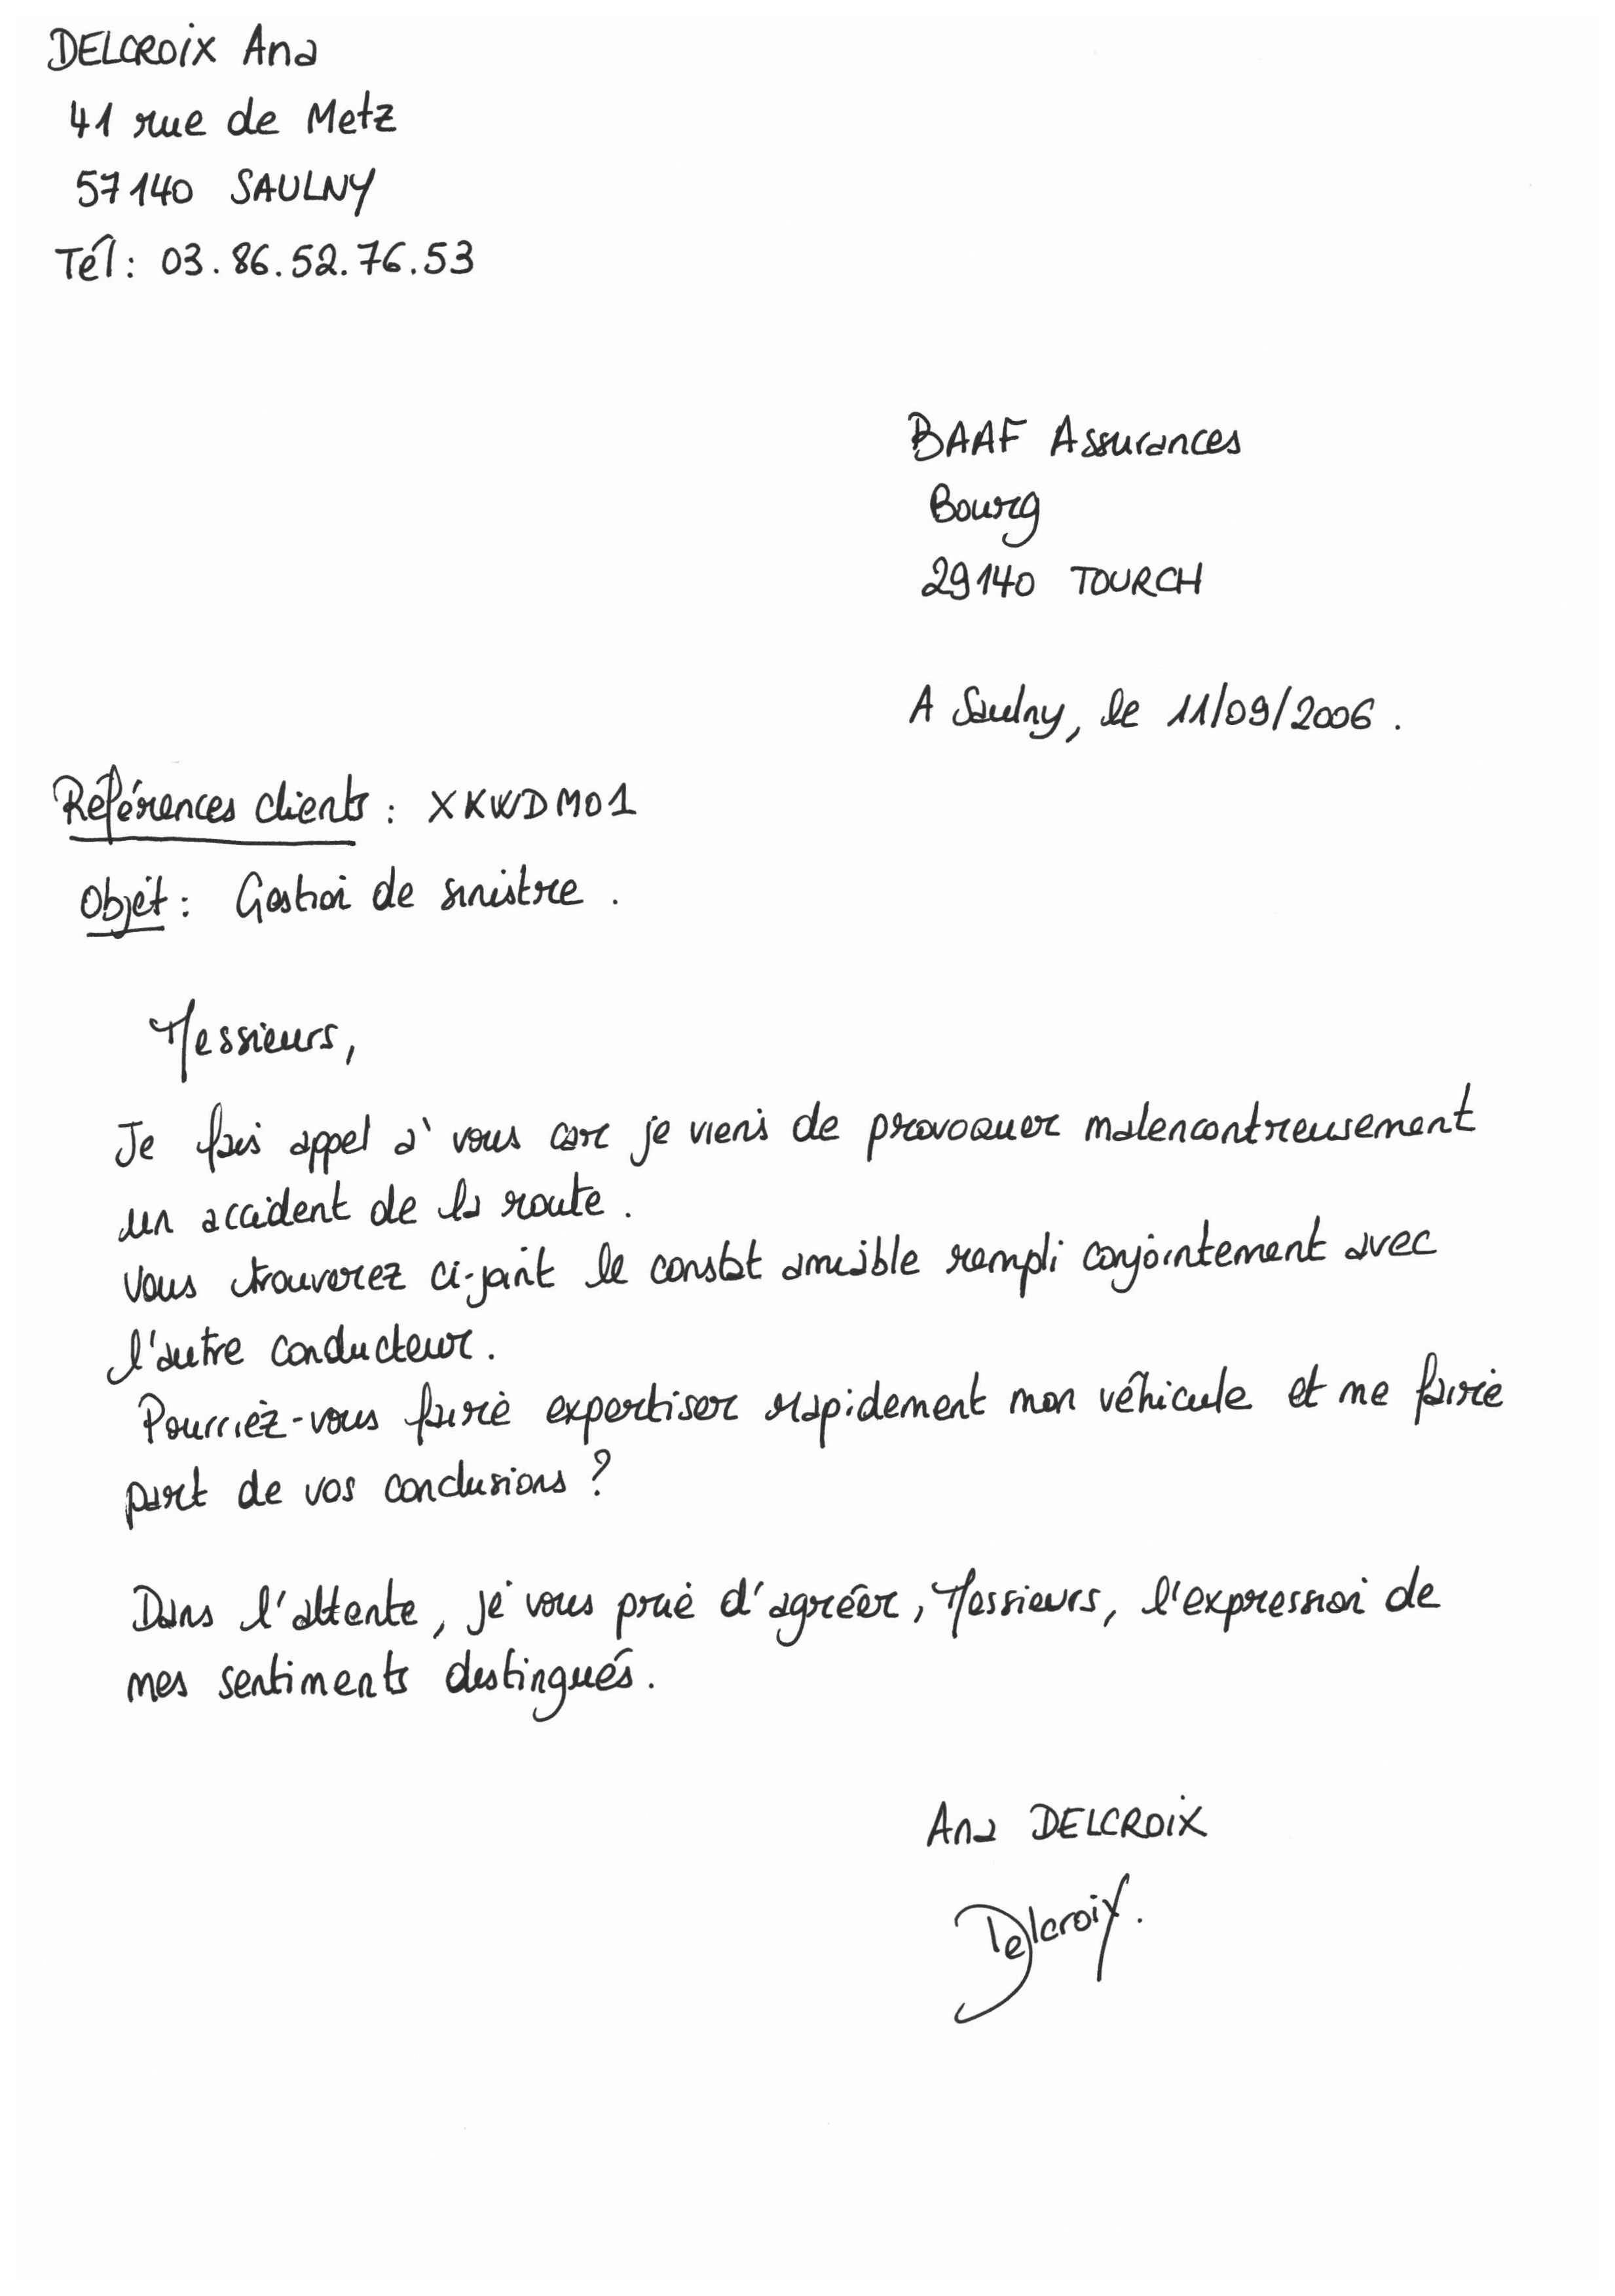 DELCROIX Ana
41 rue de Metz
57140 SAULNY
Tél : 03.86.52.76.53
BAAF Assurances
Bourg
29140 TOURCH
A Saulny, le 11/09/2006.
Références clients : XKWDM01
Objet : Gestion de sinistre.
Messieurs,
Je fais appel à vous car je viens de provoquer malencontreusement
un accident de la route.
Vous trouverez ci-joint le constat amiable rempli conjointement avec
l'autre conducteur.
Pourriez-vous faire expertiser rapidement mon véhicule et me faire
part de vos conclusions ?
Dans l'attente, je vous prie d'agréer, Messieurs, l'expression de
mes sentiments distingués.
Ana DELCROIX
Delcroix.